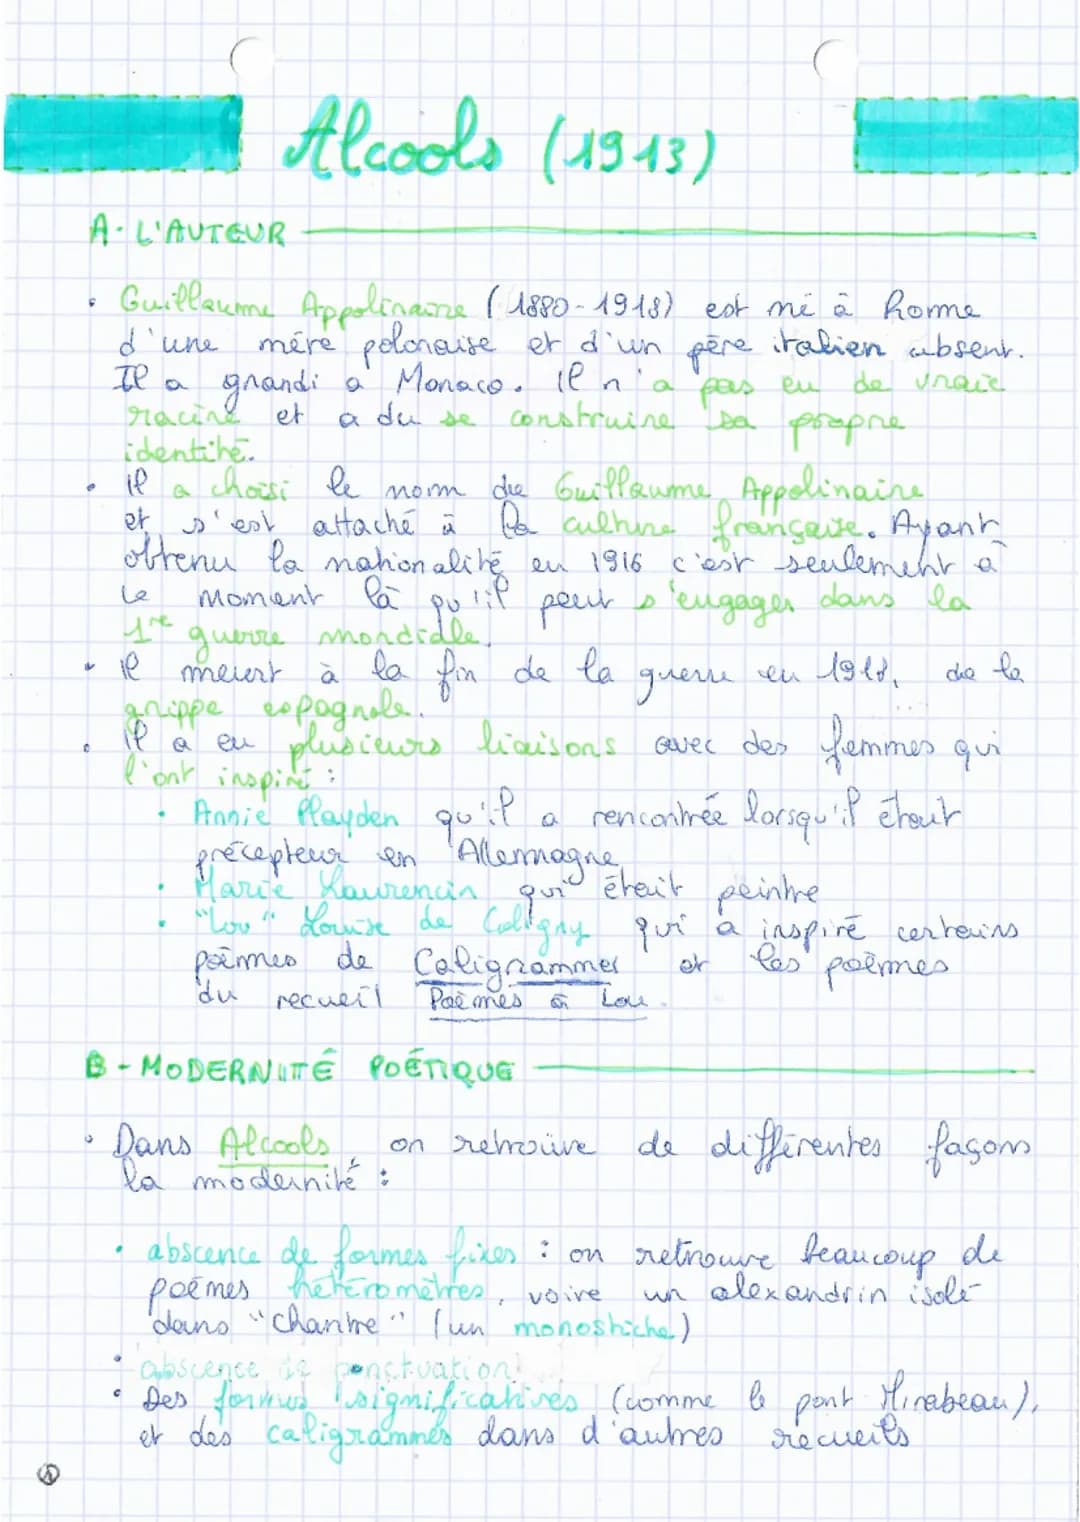 Alcools (1913)
A- L'AUTEUR
• Guillaume Appolinaire (1880-1918) est né à Rome
d'une mère polonaise et d'un père italien absent.
Il a grandi a Monaco. Il n'a pas eu de vraie
racine et a du se construire sa propre
identité.
• Il a choisi le nom de Guillaume Appolinaire
et s'est attaché à la culture française. Ayant
obtenu la nationalité en 1916 c'est seulement à
ce moment là qu'il peut s'engager dans la
1re guerre mondiale.
• Il meurt à la fin de la guerre en 1918, de la
grippe espagnole.
• Il a eu plusieurs liaisons avec des femmes qui
l'ont inspiré :
• Annie Playden qu'il a rencontrée lorsqu'il était
précepteur en Allemagne
• Marie Laurencin qui était peintre
• "Lou" Louise de Coligny qui a inspiré certains
poèmes de Caligrammes et les poèmes
du recueil Poèmes à Lou.
B - MODERNITÉ POÉTIQUE
• Dans Alcools, on retrouve de différentes façons
la modernité :
• abscence de formes fixes : on retrouve beaucoup de
poèmes hétéromètres, voire un alexandrin isolé
dans "Chantre" (un monostiche)
• abscence de ponctuation
• Des formes significatives (comme le pont Mirabeau),
et des caligrammes dans d'autres recueils
1